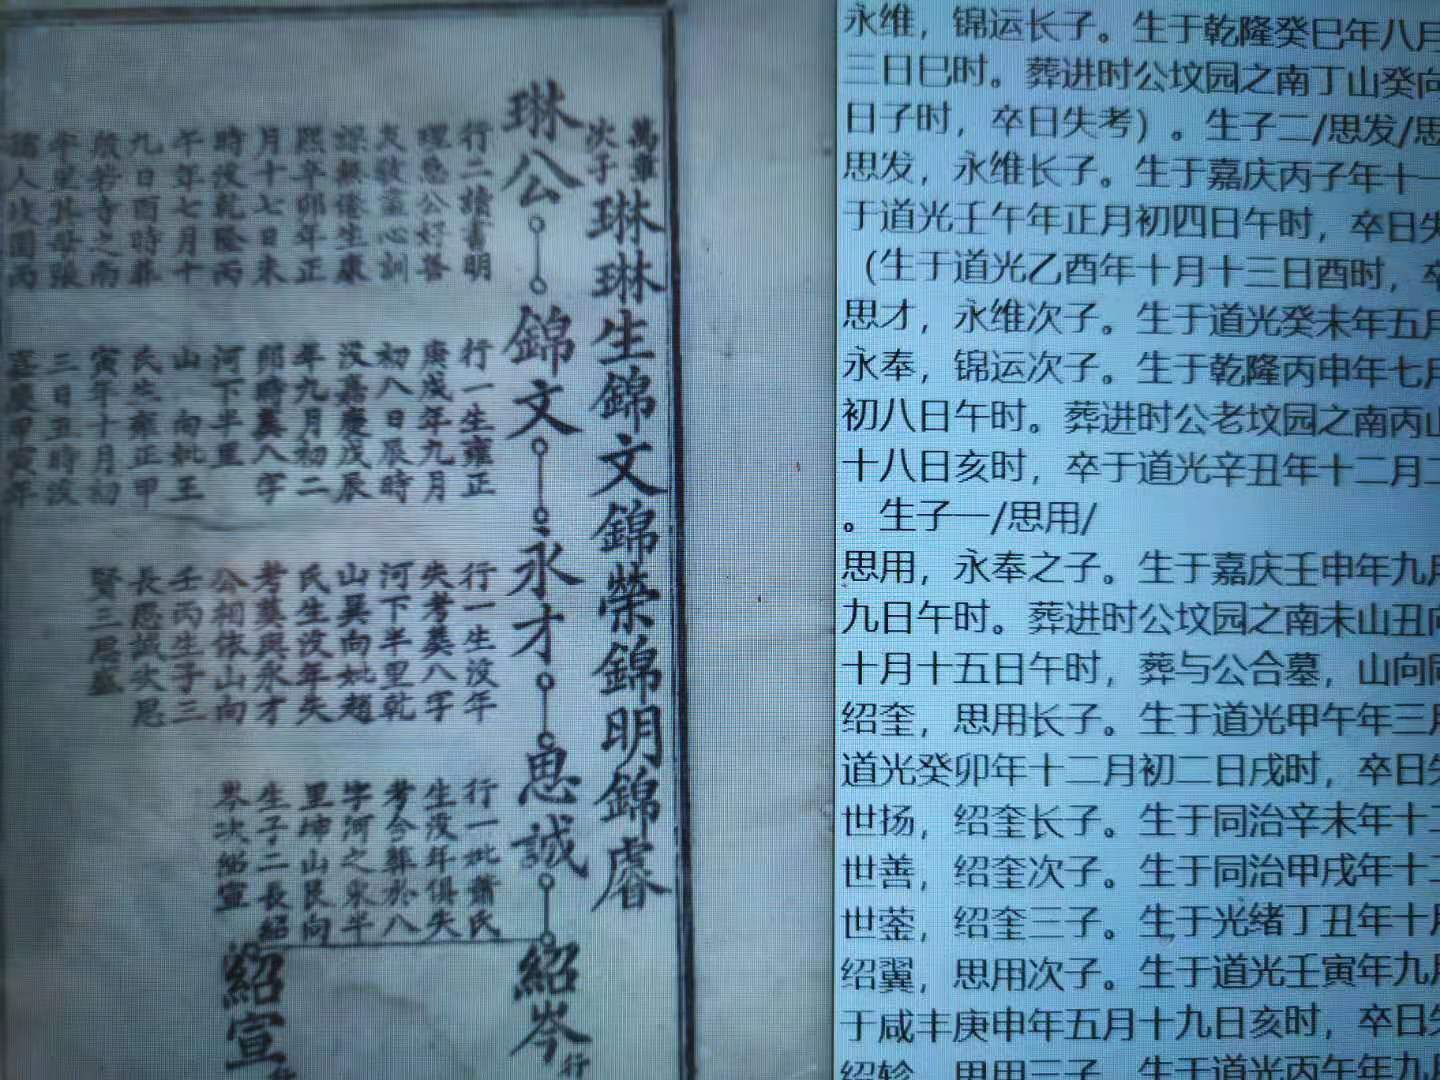 萬章
次子
琳琳生錦文錦榮錦明錦睿
琳公
行二讀書明
理急公好善
友敬童心訓
誤無倦生康
熙辛卯年正
月十七日未
時没乾隆丙
午年七月十
九日酉時葬
般若寺之南
半里其母張
孺人坟園丙
錦文
行一生雍正
庚戌年九月
初八日辰時
没嘉慶戊辰
年九月初二
卯時葬八字
河下半里
山 向妣王
氏生雍正甲
寅年十月初
三日丑時没
嘉慶甲寅年
永才
行一生没年
失考葬八字
河下半里乾
山巽向妣趙
氏生没年失
考葬與永才
公相依山向
壬丙生子三
長思誠次思
賢三思盛
思誠
行一妣蕭氏
生没年俱失
考合葬於八
字河之東半
里坤山艮向
生子二長紹
岑次紹宣
紹岑
行
紹宣
永维，锦运长子。生于乾隆癸巳年八月
三日巳时。葬进时公坟园之南丁山癸向
日子时，卒日失考）。生子二/思发/思
思发，永维长子。生于嘉庆丙子年十一
于道光壬午年正月初四日午时，卒日失
（生于道光乙酉年十月十三日酉时，卒
思才，永维次子。生于道光癸未年五月
永奉，锦运次子。生于乾隆丙申年七月
初八日午时。葬进时公老坟园之南丙山
十八日亥时，卒于道光辛丑年十二月二
。生子一/思用/
思用，永奉之子。生于嘉庆壬申年九月
九日午时。葬进时公坟园之南未山丑向
十月十五日午时，葬与公合墓，山向同
绍奎，思用长子。生于道光甲午年三月
道光癸卯年十二月初二日戌时，卒日失
世扬，绍奎长子。生于同治辛未年十二
世善，绍奎次子。生于同治甲戌年十二
世蓥，绍奎三子。生于光绪丁丑年十月
绍翼，思用次子。生于道光壬寅年九月
于咸丰庚申年五月十九日亥时，卒日失
绍轸，思用三子。生于道光丙午年九月